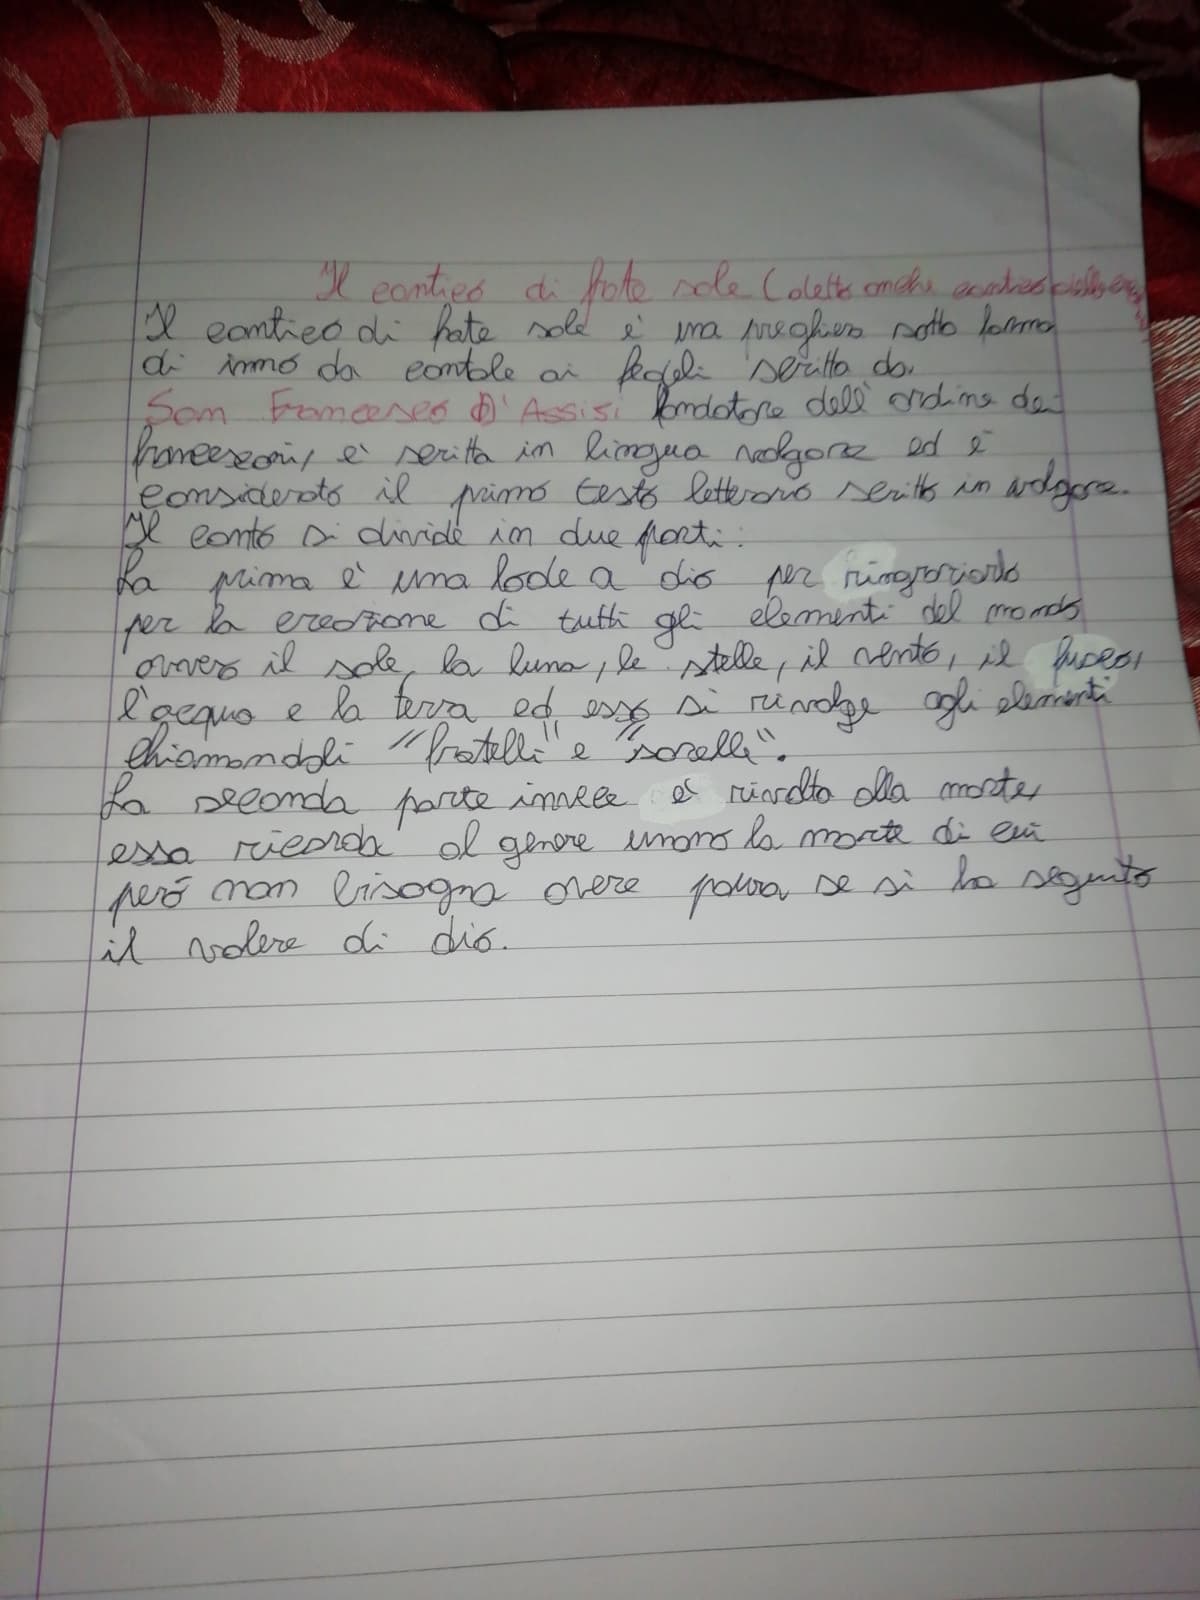 Il cantico di frate sole (detto anche cantico delle
Il cantico di frate sole è una preghiera sotto forma
di inno da cantale ai fedeli scritta da
San Francesco D'Assisi fondatore dell'ordine dei
francescani, è scritta in lingua volgare ed è
considerato il primo testo letterario scritto in volgare.
Il canto si divide in due parti:
La prima è una lode a dio per ringraziarlo
per la creazione di tutti gli elementi del mondo
ovvero il sole, la luna, le stelle, il vento, il fuoco,
l'acqua e la terra ed esso si rivolge agli elementi
chiamandoli "fratelli" e "sorelle".
La seconda parte invece è rivolta alla morte,
essa ricorda al genere umano la morte di cui
però non bisogna avere paura se si ha seguito
il volere di dio.